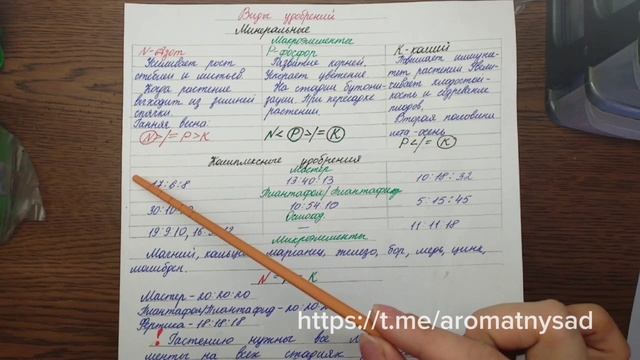 Виды удобрений
Минеральные
Макроэлементы
N-Азот P-фосфор K-калий
Усиливает рост Развитие корней. Повышает иммуни-
стеблей и листьев. Ускоряет цветение. тет растений. Увели-
Когда растение На стадии бутони- чивает хладостой-
выходит из зимней зации. При пересадке кость и созревание
спячки. растений. плодов.
Ранняя весна. Вторая половина
лета-осень
N>/=P>K N<P>/=K P</=K
Комплексные удобрения
Мастер
17:6:8 13:40:13 10:18:32
Плантафол/Плантафид
30:10:10 10:54:10 5:15:45
Осмокод
19:9:10, 16: — 11:11:18
Микроэлементы
Магний, кальций, марганец, железо, бор, медь, цинк,
молибден.
N = P = K
Мастер-20:20:20
Плантафол/Плантафид-20:20:2
Фертика-18:18:18
https://t.me/aromatnysad
! Растению нужны все
менты на всех стадиях